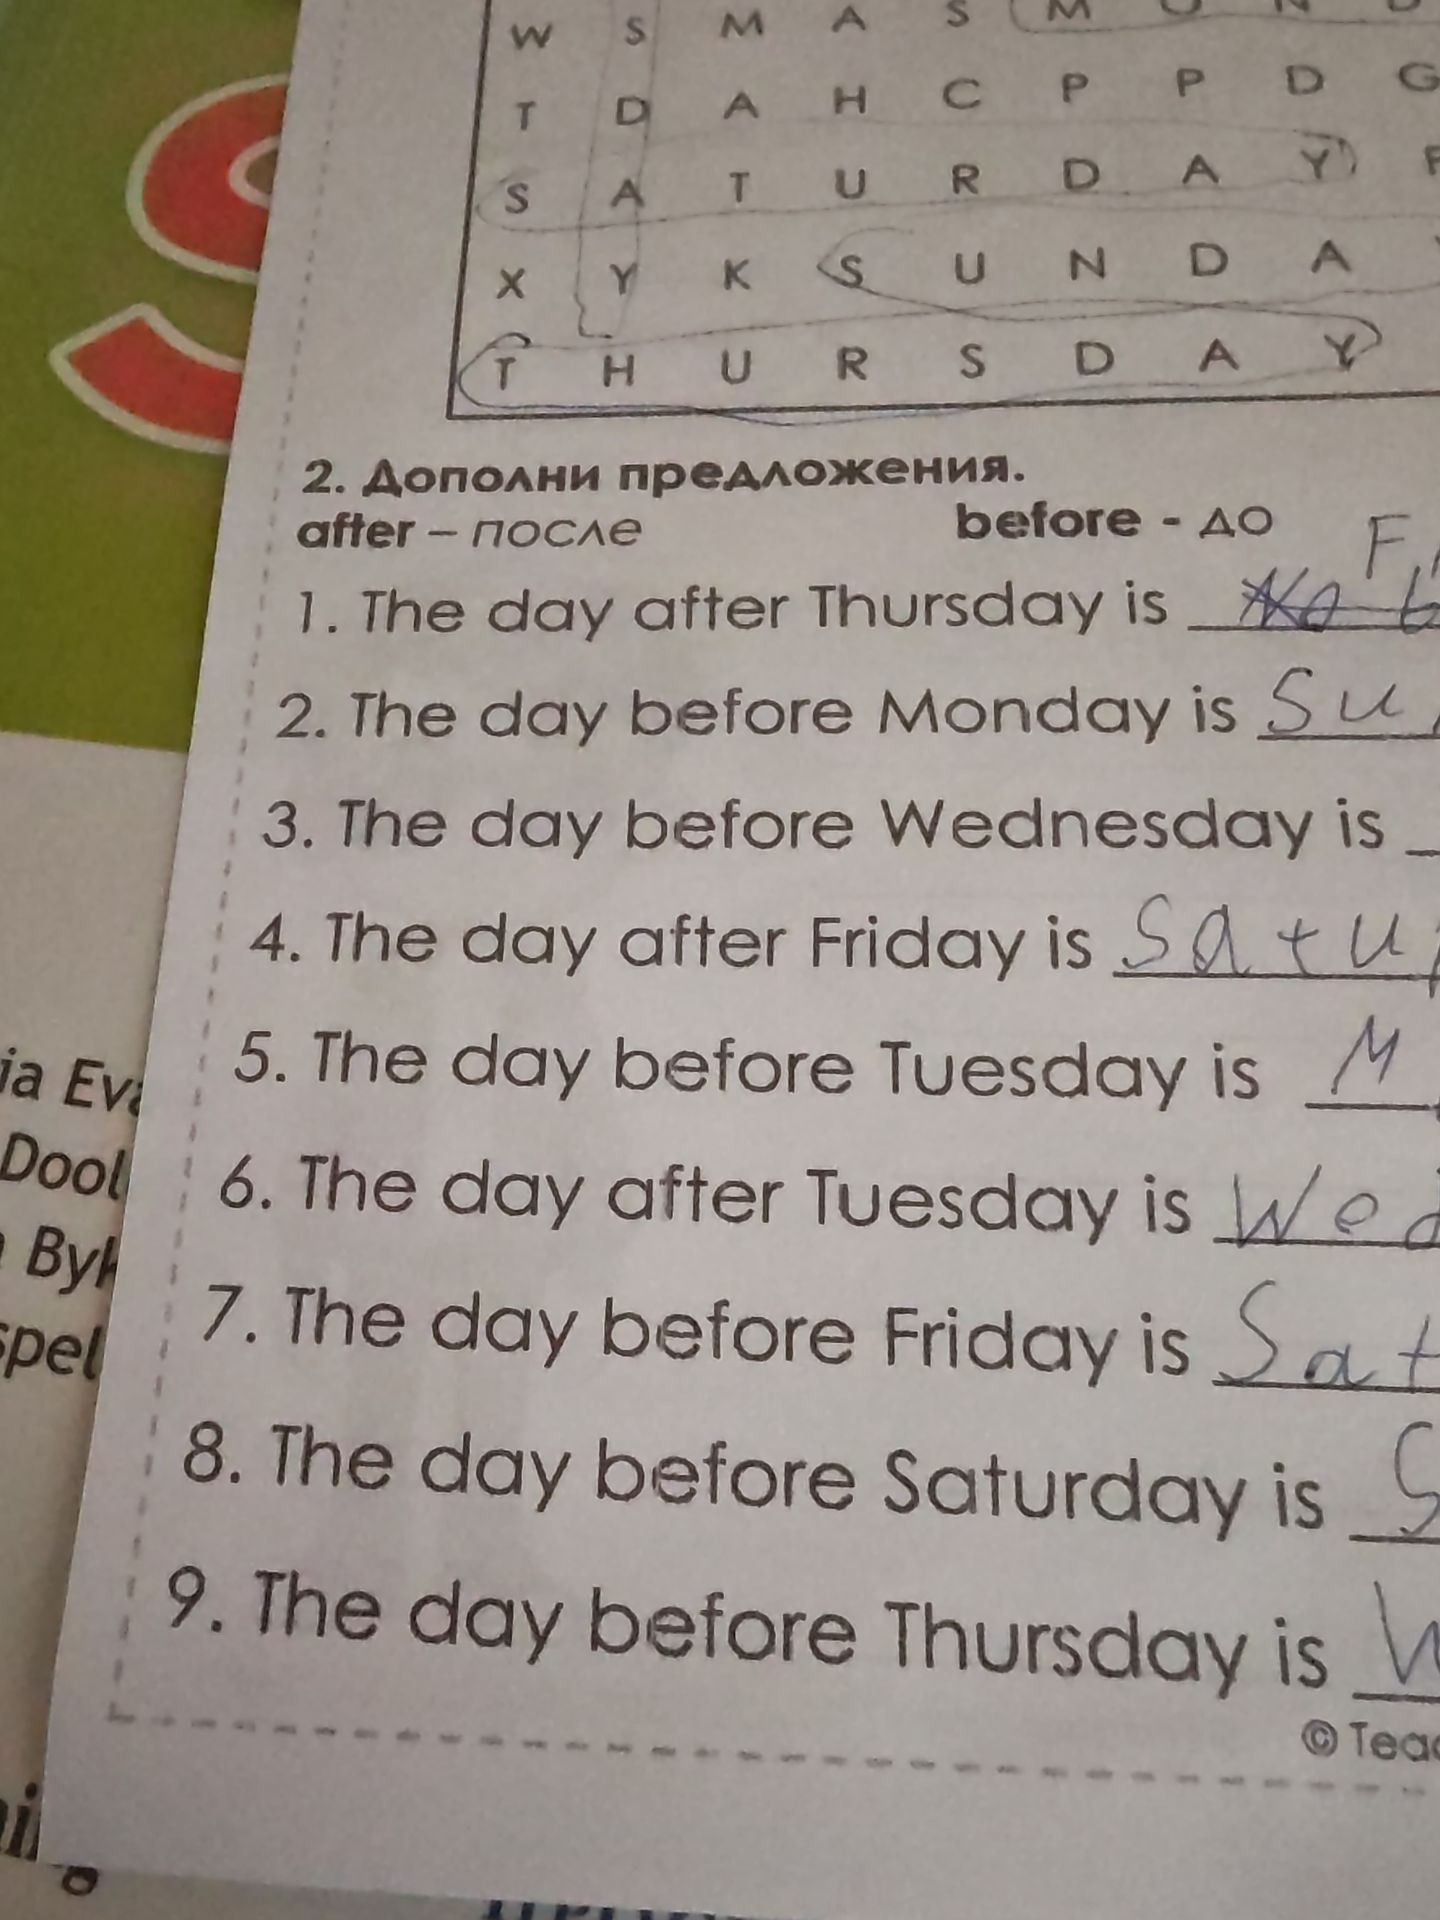 W S M A S M O N D
T D A H C P P D G
S A T U R D A Y
X Y K S U N D A
T H U R S D A Y
2. Дополни предложения.
after – после before - до
1. The day after Thursday is
2. The day before Monday is Su
3. The day before Wednesday is
4. The day after Friday is Satur
5. The day before Tuesday is M
6. The day after Tuesday is Wed
7. The day before Friday is Sat
8. The day before Saturday is S
9. The day before Thursday is W
© Teac
ia Eva
Dool
Byk
spel